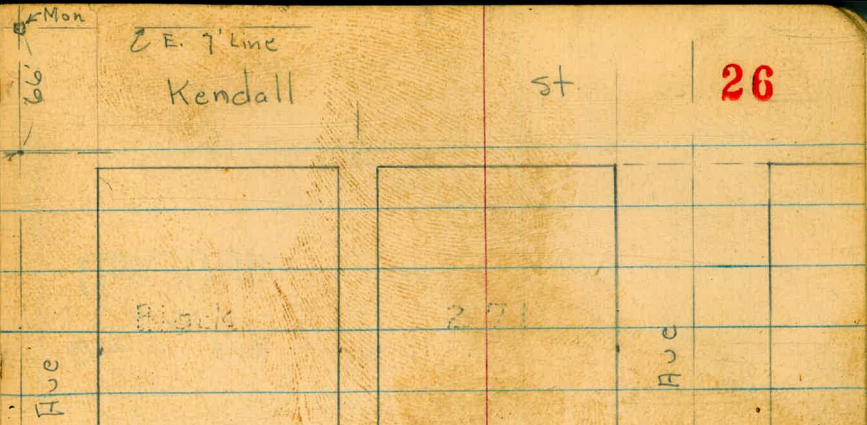 Mon
E. 7' Line
66'
Kendall St. 26
Block 271
Ave
Ave